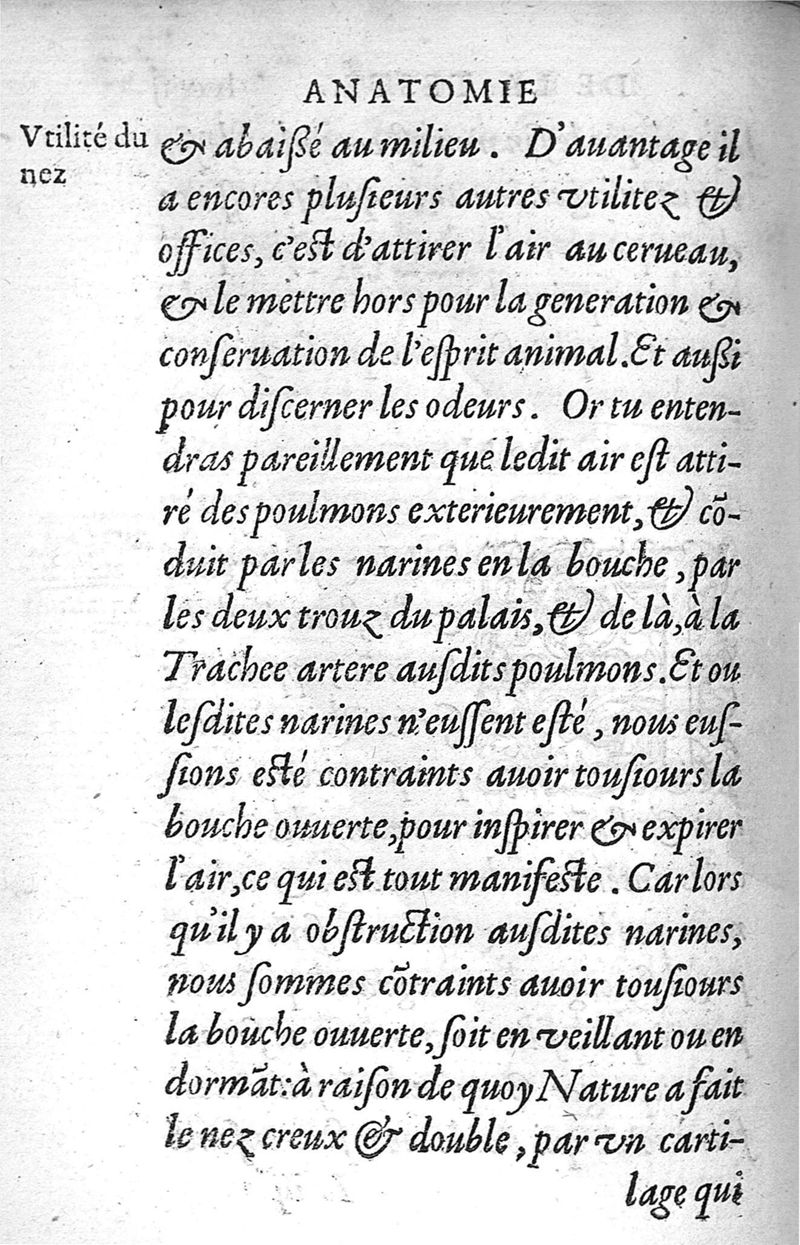 ANATOMIE
Vtilité du
nez
& abaißé au milieu. D'auantage il
a encores pluſieurs autres vtilitez &
offices, c'eſt d'attirer l'air au cerueau,
& le mettre hors pour la generation &
conſeruation de l'eſprit animal. Et außi
pour diſcerner les odeurs. Or tu enten-
dras pareillement que ledit air eſt atti-
ré des poulmons exterieurement, & cõ-
duit par les narines en la bouche, par
les deux trouz du palais, & de là, à la
Trachee artere auſdits poulmons. Et ou
leſdites narines n'euſſent eſté, nous euſ-
ſions eſté contraints auoir touſiours la
bouche ouuerte, pour inſpirer & expirer
l'air, ce qui eſt tout manifeſte. Car lors
qu'il y a obſtruction auſdites narines,
nous ſommes cõtraints auoir touſiours
la bouche ouuerte, ſoit en veillant ou en
dormãt: à raiſon de quoy Nature a fait
le nez creux & double, par vn carti-
lage qui